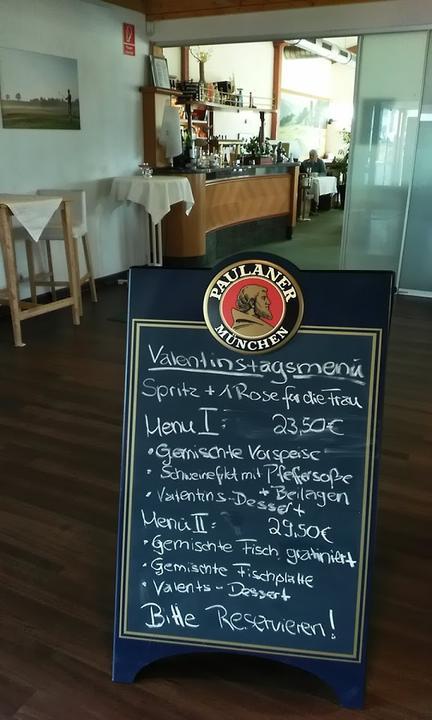 PAULANER
MÜNCHEN
Valentinstagsmenü
Spritz + 1 Rose für die Frau
Menü I: 23,50€
• Gemischte Vorspeise
• Schweinefilet mit Pfeffersoße
+ Beilagen
• Valentins-Dessert
Menü II: 29,50€
• Gemischte Fisch, gratiniert
• Gemischte Fischplatte
• Valents-Dessert
Bitte Reservieren!